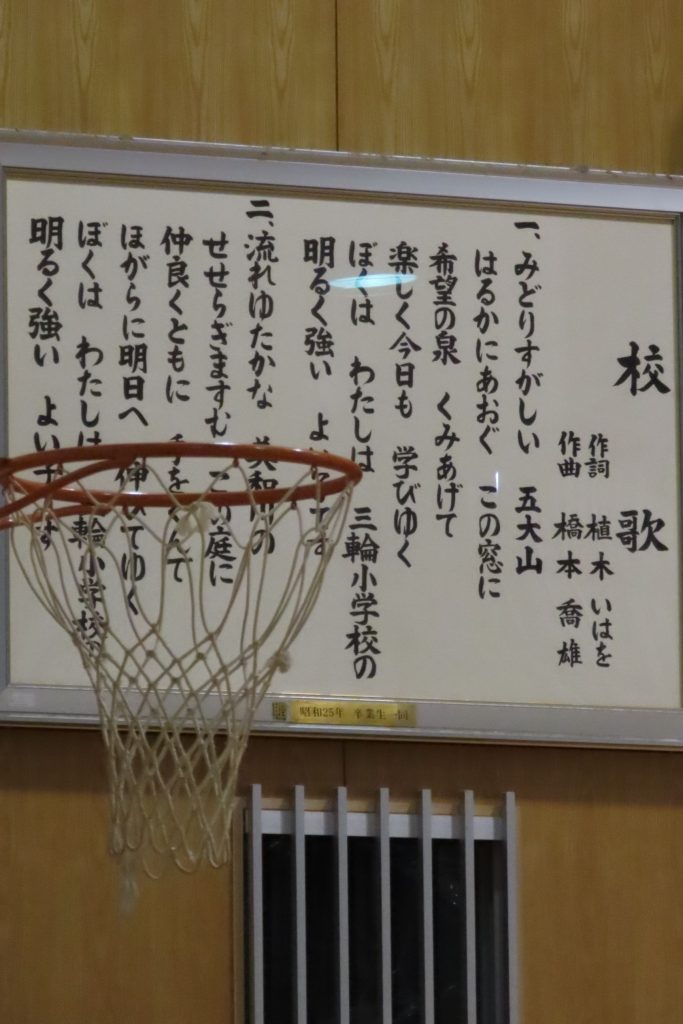 校歌
作詞 植木 いはを
作曲 橋本 喬雄
一、みどりすがしい 五大山
はるかにあおぐ この窓に
希望の泉 くみあげて
楽しく今日も 学びゆく
ぼくは わたしは 三輪小学校の
明るく強い よい です
二、流れゆたかな 美和 の
せせらぎますむ この庭に
仲良くともに 手をくんで
ほがらに明日へ 伸びてゆく
ぼくは わたしは 輪小学校
明るく強い よい です
昭和25年 卒業生一同